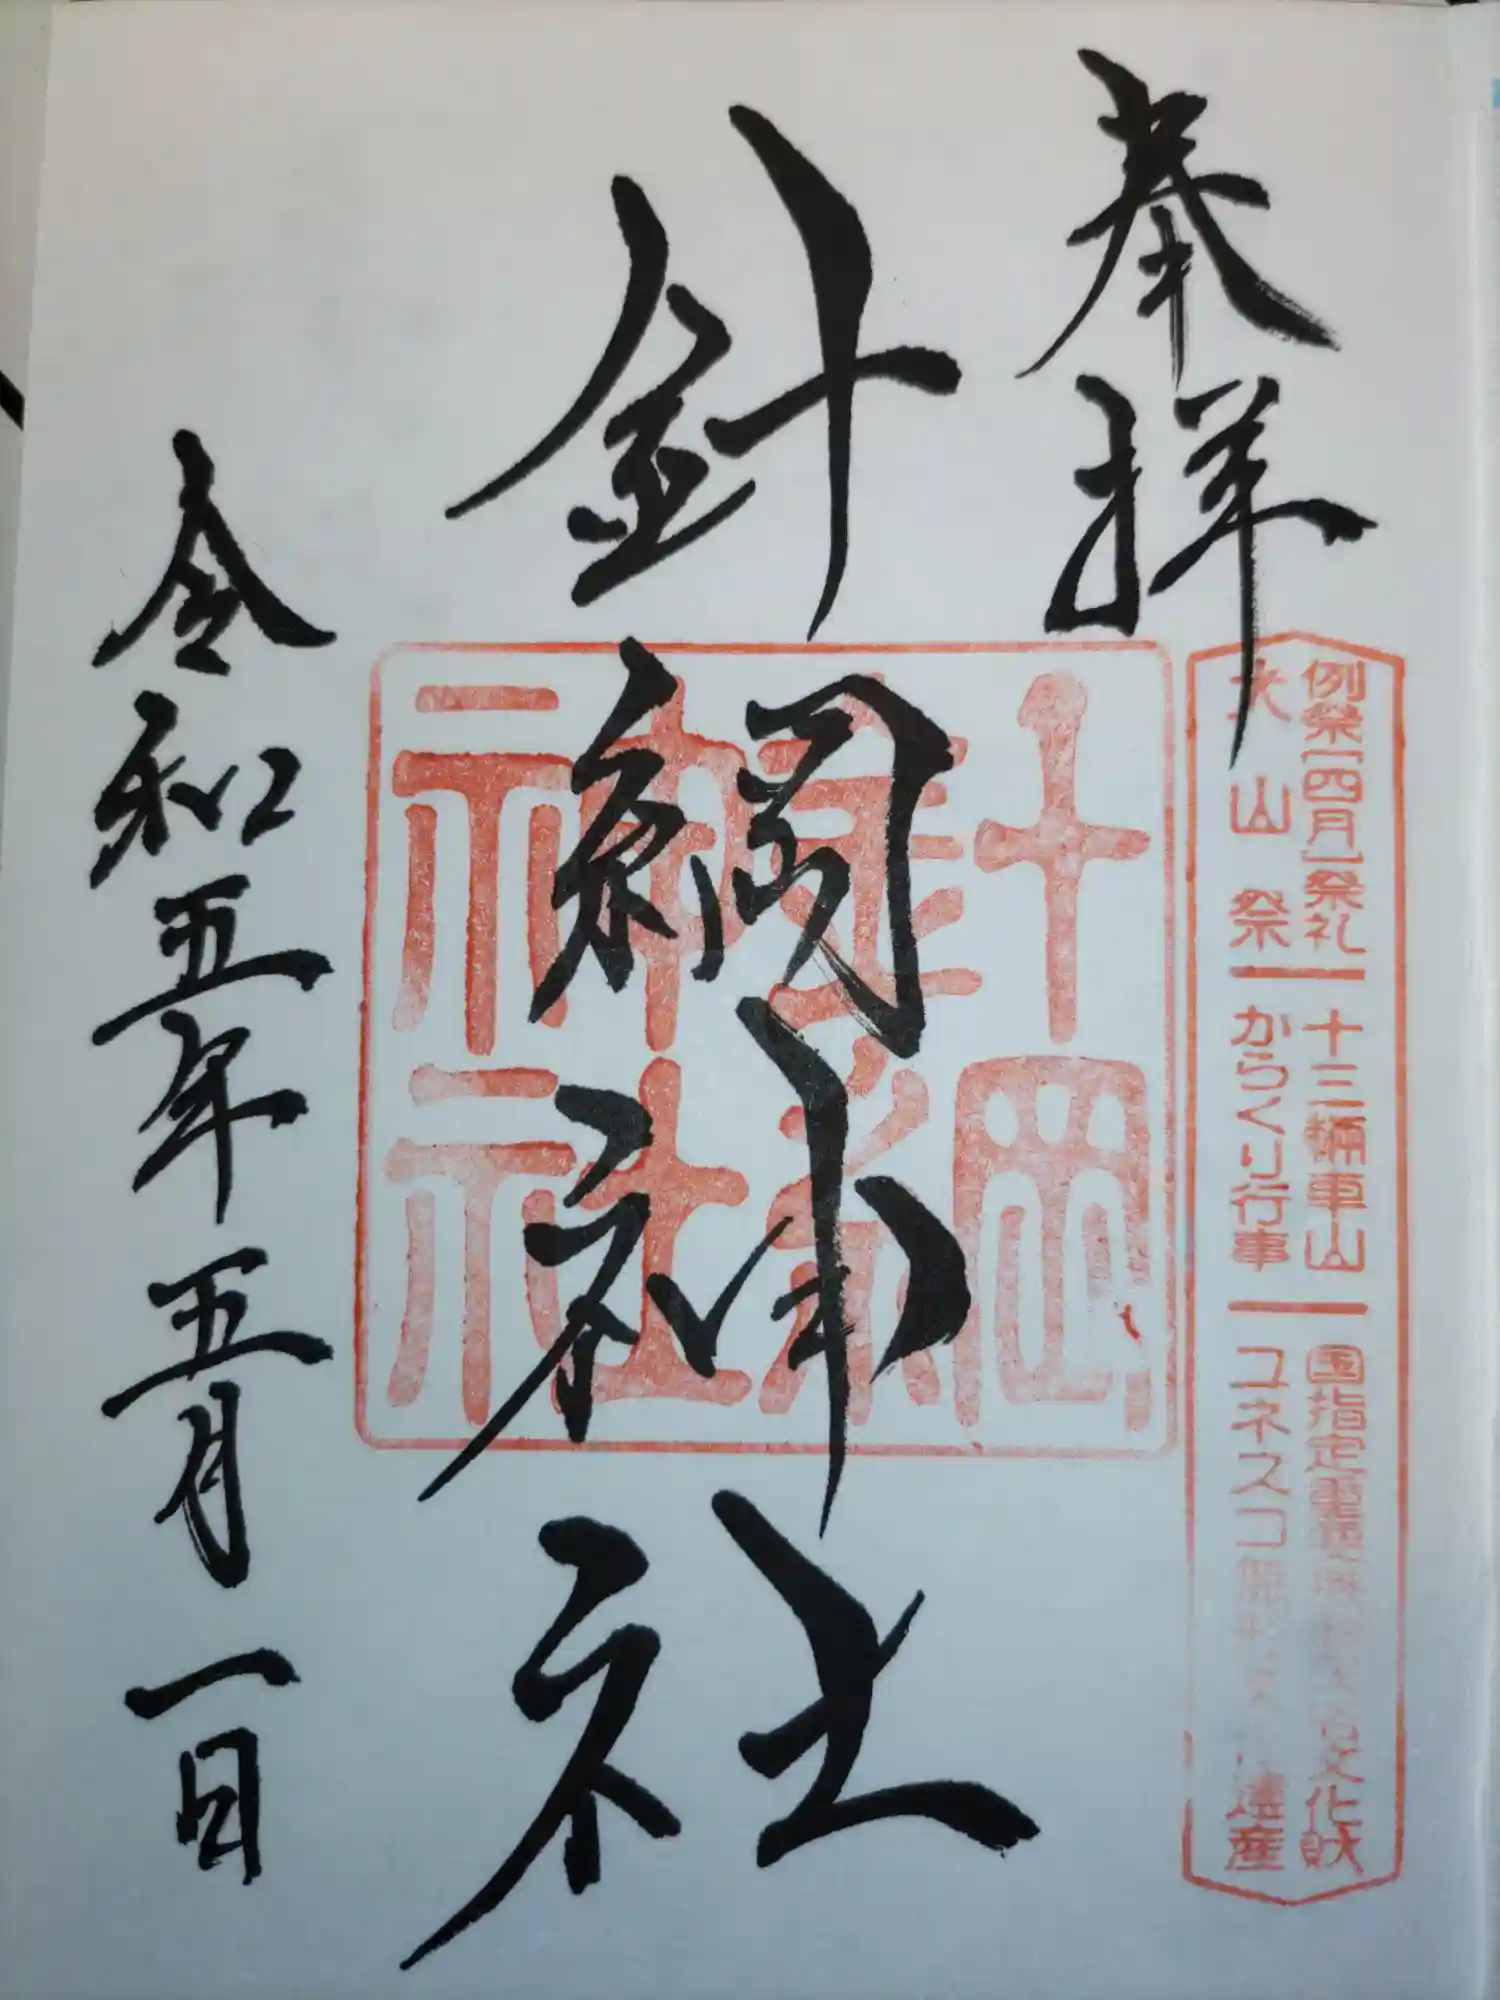 奉拝
例祭[四月]祭礼 十三輌車山 国指定重要無形民俗文化財
犬山祭 からくり行事 ユネスコ無形文化遺産
針綱神社
針綱神社
令和五年五月一日